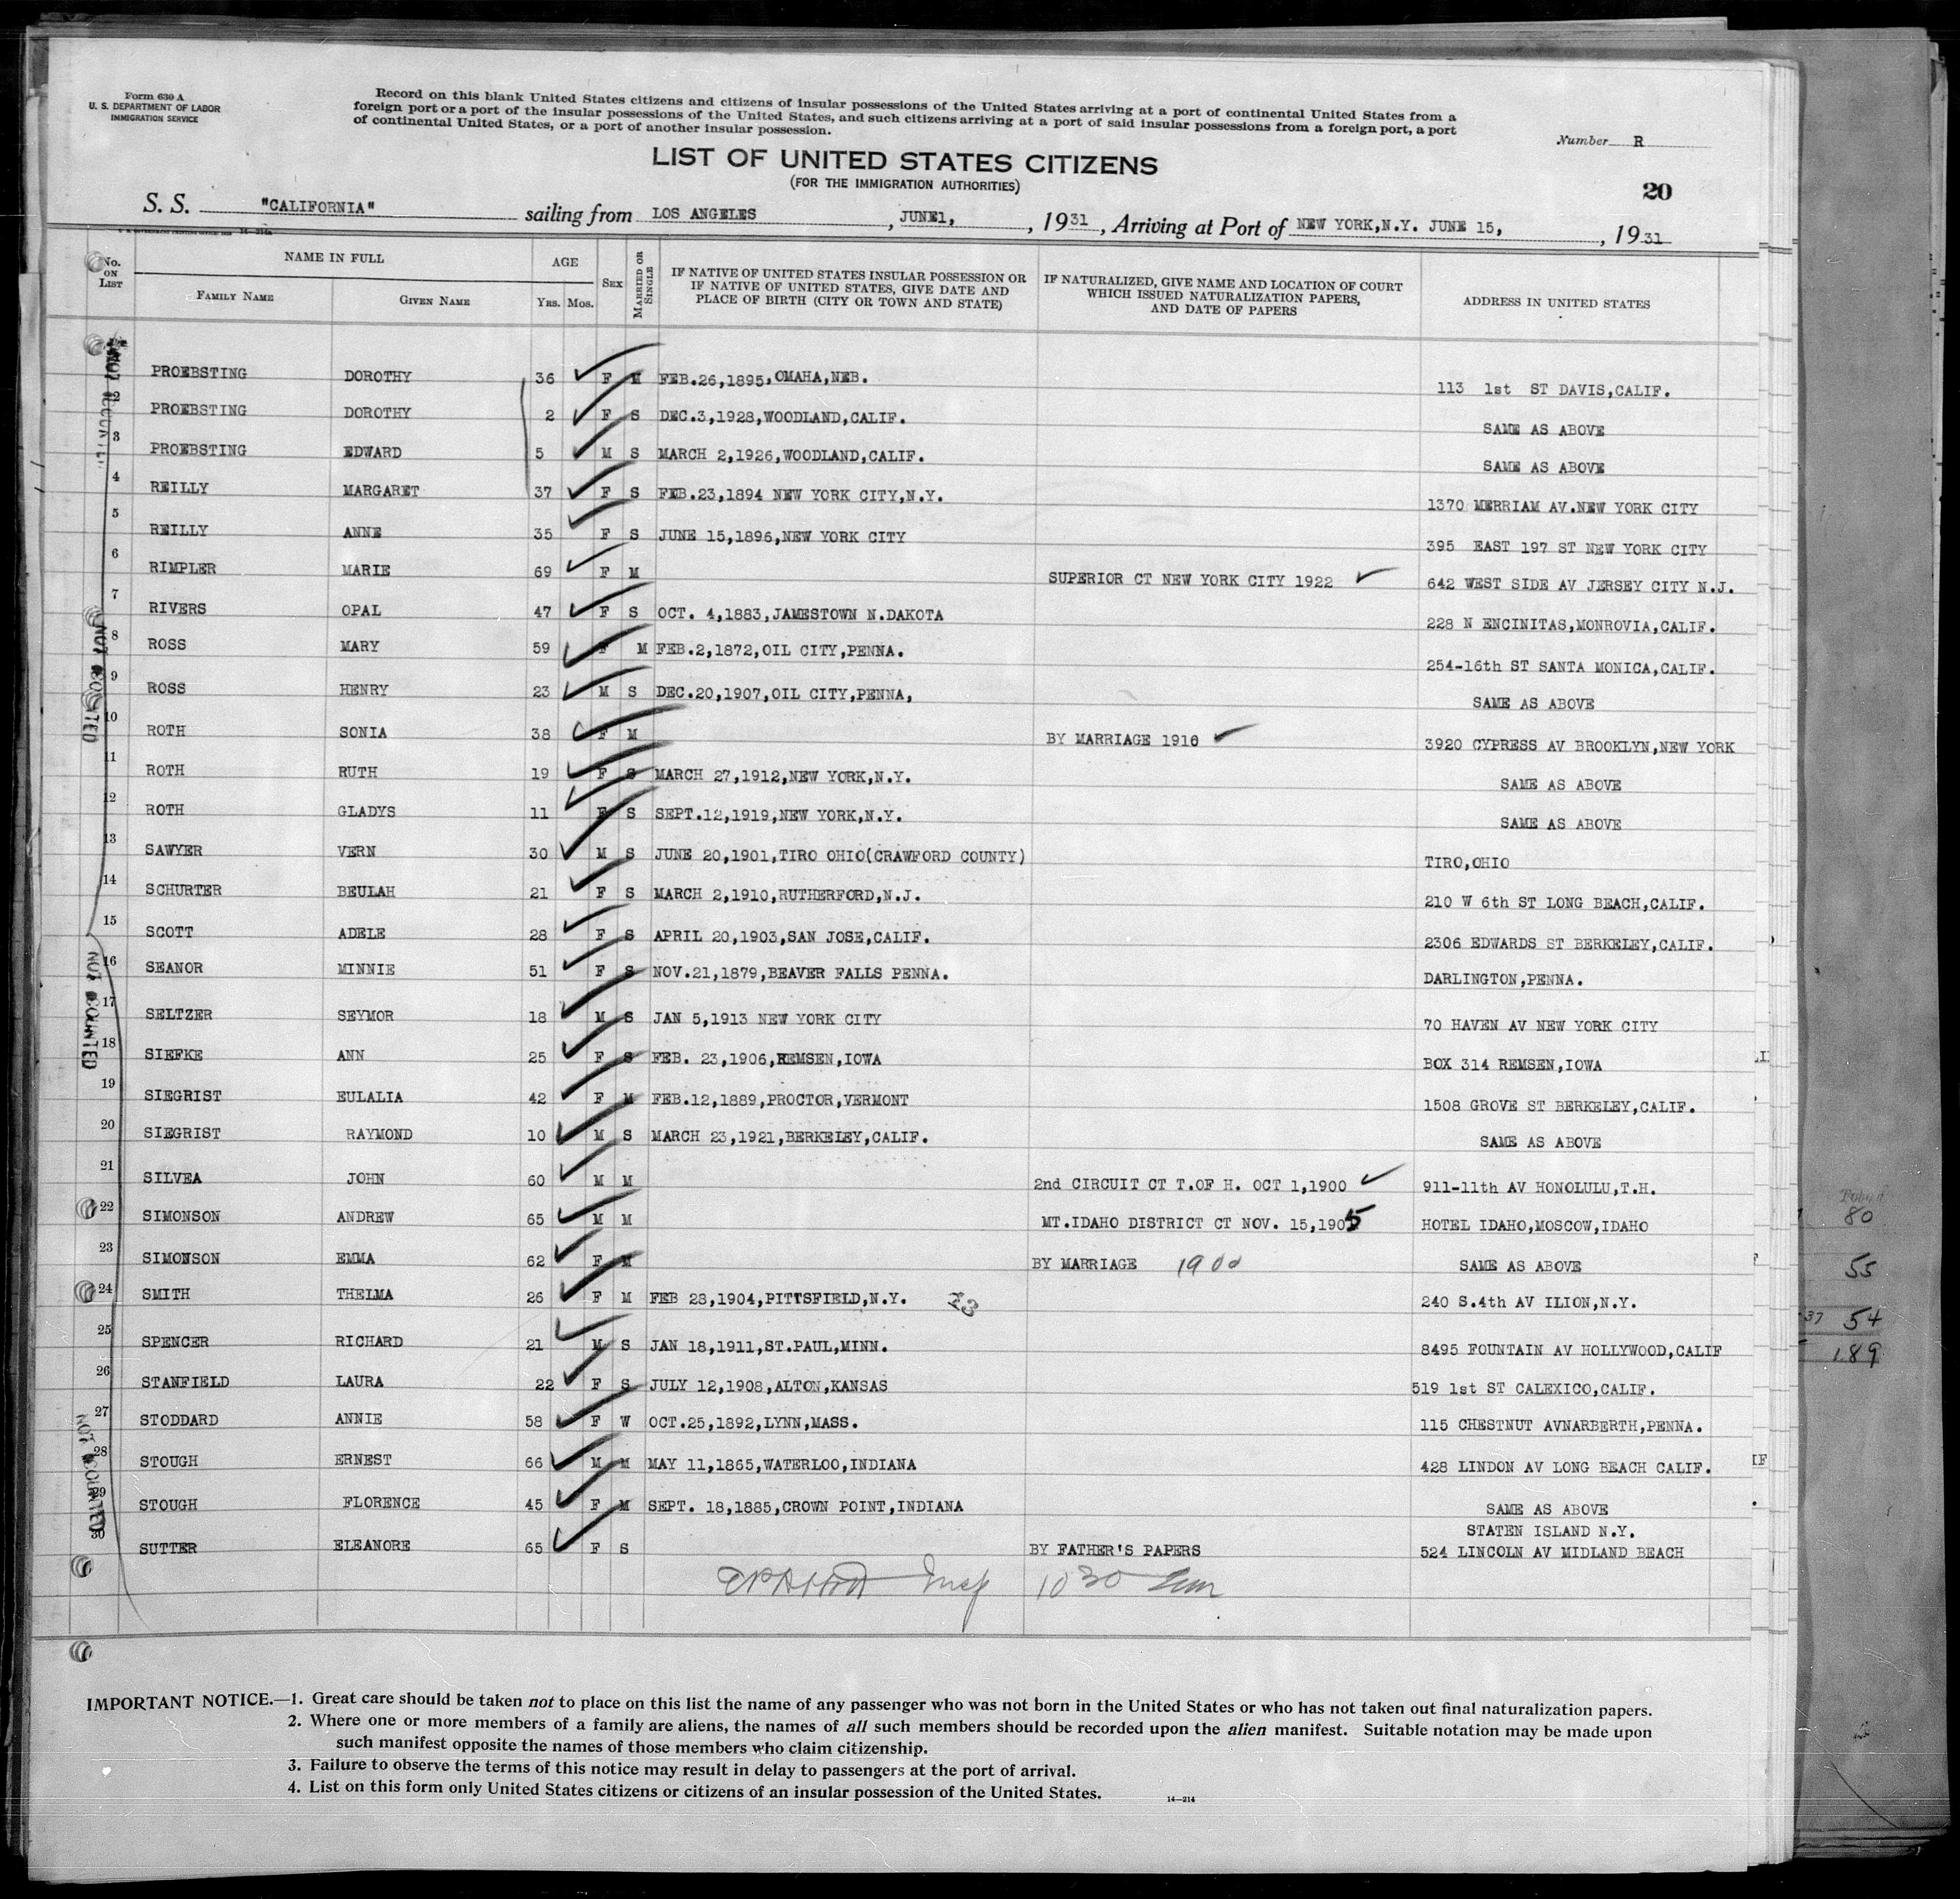 Form 630 A
U. S. DEPARTMENT OF LABOR
IMMIGRATION SERVICE
Record on this blank United States citizens and citizens of insular possessions of the United States arriving at a port of continental United States from a
foreign port or a port of the insular possessions of the United States, and such citizens arriving at a port of said insular possessions from a foreign port, a port
of continental United States, or a port of another insular possession.
Number R
LIST OF UNITED STATES CITIZENS
(FOR THE IMMIGRATION AUTHORITIES)
20
S. S. "CALIFORNIA" sailing from LOS ANGELES, JUNE1, 1931, Arriving at Port of NEW YORK,N.Y. JUNE 15, 1931
No. ON LIST
NAME IN FULL
FAMILY NAME GIVEN NAME
AGE
YRS. MOS.
SEX
MARRIED OR SINGLE
IF NATIVE OF UNITED STATES INSULAR POSSESSION OR
IF NATIVE OF UNITED STATES, GIVE DATE AND
PLACE OF BIRTH (CITY OR TOWN AND STATE)
IF NATURALIZED, GIVE NAME AND LOCATION OF COURT
WHICH ISSUED NATURALIZATION PAPERS,
AND DATE OF PAPERS
ADDRESS IN UNITED STATES
PROEBSTING DOROTHY 36 F M FEB.26,1895,OMAHA,NEB. 113 1st ST DAVIS,CALIF.
2 PROEBSTING DOROTHY 2 F S DEC.3,1928,WOODLAND,CALIF. SAME AS ABOVE
3 PROEBSTING EDWARD 5 M S MARCH 2,1926,WOODLAND,CALIF. SAME AS ABOVE
4 REILLY MARGARET 37 F S FEB.23,1894 NEW YORK CITY,N.Y. 1370 MERRIAM AV.NEW YORK CITY
5 REILLY ANNE 35 F S JUNE 15,1896,NEW YORK CITY 395 EAST 197 ST NEW YORK CITY
6 RIMPLER MARIE 69 F M SUPERIOR CT NEW YORK CITY 1922 642 WEST SIDE AV JERSEY CITY N.J.
7 RIVERS OPAL 47 F S OCT. 4,1883,JAMESTOWN N.DAKOTA 228 N ENCINITAS,MONROVIA,CALIF.
8 ROSS MARY 59 F M FEB.2,1872,OIL CITY,PENNA. 254-16th ST SANTA MONICA,CALIF.
9 ROSS HENRY 23 M S DEC.20,1907,OIL CITY,PENNA, SAME AS ABOVE
10 ROTH SONIA 38 F M BY MARRIAGE 1916 3920 CYPRESS AV BROOKLYN,NEW YORK
11 ROTH RUTH 19 F S MARCH 27,1912,NEW YORK,N.Y. SAME AS ABOVE
12 ROTH GLADYS 11 F S SEPT.12,1919,NEW YORK,N.Y. SAME AS ABOVE
13 SAWYER VERN 30 M S JUNE 20,1901,TIRO OHIO(CRAWFORD COUNTY) TIRO,OHIO
14 SCHURTER BEULAH 21 F S MARCH 2,1910,RUTHERFORD,N.J. 210 W 6th ST LONG BEACH,CALIF.
15 SCOTT ADELE 28 F S APRIL 20,1903,SAN JOSE,CALIF. 2306 EDWARDS ST BERKELEY,CALIF.
16 SEANOR MINNIE 51 F S NOV.21,1879,BEAVER FALLS PENNA. DARLINGTON,PENNA.
17 SELTZER SEYMOR 18 M S JAN 5,1913 NEW YORK CITY 70 HAVEN AV NEW YORK CITY
18 SIEFKE ANN 25 F S FEB. 23,1906,REMSEN,IOWA BOX 314 REMSEN,IOWA
19 SIEGRIST EULALIA 42 F M FEB.12,1889,PROCTOR,VERMONT 1508 GROVE ST BERKELEY,CALIF.
20 SIEGRIST RAYMOND 10 M S MARCH 23,1921,BERKELEY,CALIF. SAME AS ABOVE
21 SILVEA JOHN 60 M M 2nd CIRCUIT CT T.OF H. OCT 1,1900 911-11th AV HONOLULU,T.H.
22 SIMONSON ANDREW 65 M M MT.IDAHO DISTRICT CT NOV. 15,1905 HOTEL IDAHO,MOSCOW,IDAHO
23 SIMONSON EMMA 62 F M BY MARRIAGE 1900 SAME AS ABOVE
24 SMITH THELMA 26 F M FEB 28,1904,PITTSFIELD,N.Y. 23 240 S.4th AV ILION,N.Y.
25 SPENCER RICHARD 21 M S JAN 18,1911,ST.PAUL,MINN. 8495 FOUNTAIN AV HOLLYWOOD,CALIF
26 STANFIELD LAURA 22 F S JULY 12,1908,ALTON,KANSAS 519 1st ST CALEXICO,CALIF.
27 STODDARD ANNIE 58 F W OCT.25,1892,LYNN,MASS. 115 CHESTNUT AVNARBERTH,PENNA.
28 STOUGH ERNEST 66 M M MAY 11,1865,WATERLOO,INDIANA 428 LINDON AV LONG BEACH CALIF.
29 STOUGH FLORENCE 45 F M SEPT. 18,1885,CROWN POINT,INDIANA SAME AS ABOVE
STATEN ISLAND N.Y.
30 SUTTER ELEANORE 65 F S BY FATHER'S PAPERS 524 LINCOLN AV MIDLAND BEACH
Insp 10 30
NOT COUNTED
NOT COUNTED
NOT COUNTED
NOT COUNTED
80
55
37 54
189
IMPORTANT NOTICE.—1. Great care should be taken not to place on this list the name of any passenger who was not born in the United States or who has not taken out final naturalization papers.
2. Where one or more members of a family are aliens, the names of all such members should be recorded upon the alien manifest. Suitable notation may be made upon
such manifest opposite the names of those members who claim citizenship.
3. Failure to observe the terms of this notice may result in delay to passengers at the port of arrival.
4. List on this form only United States citizens or citizens of an insular possession of the United States.
14—214